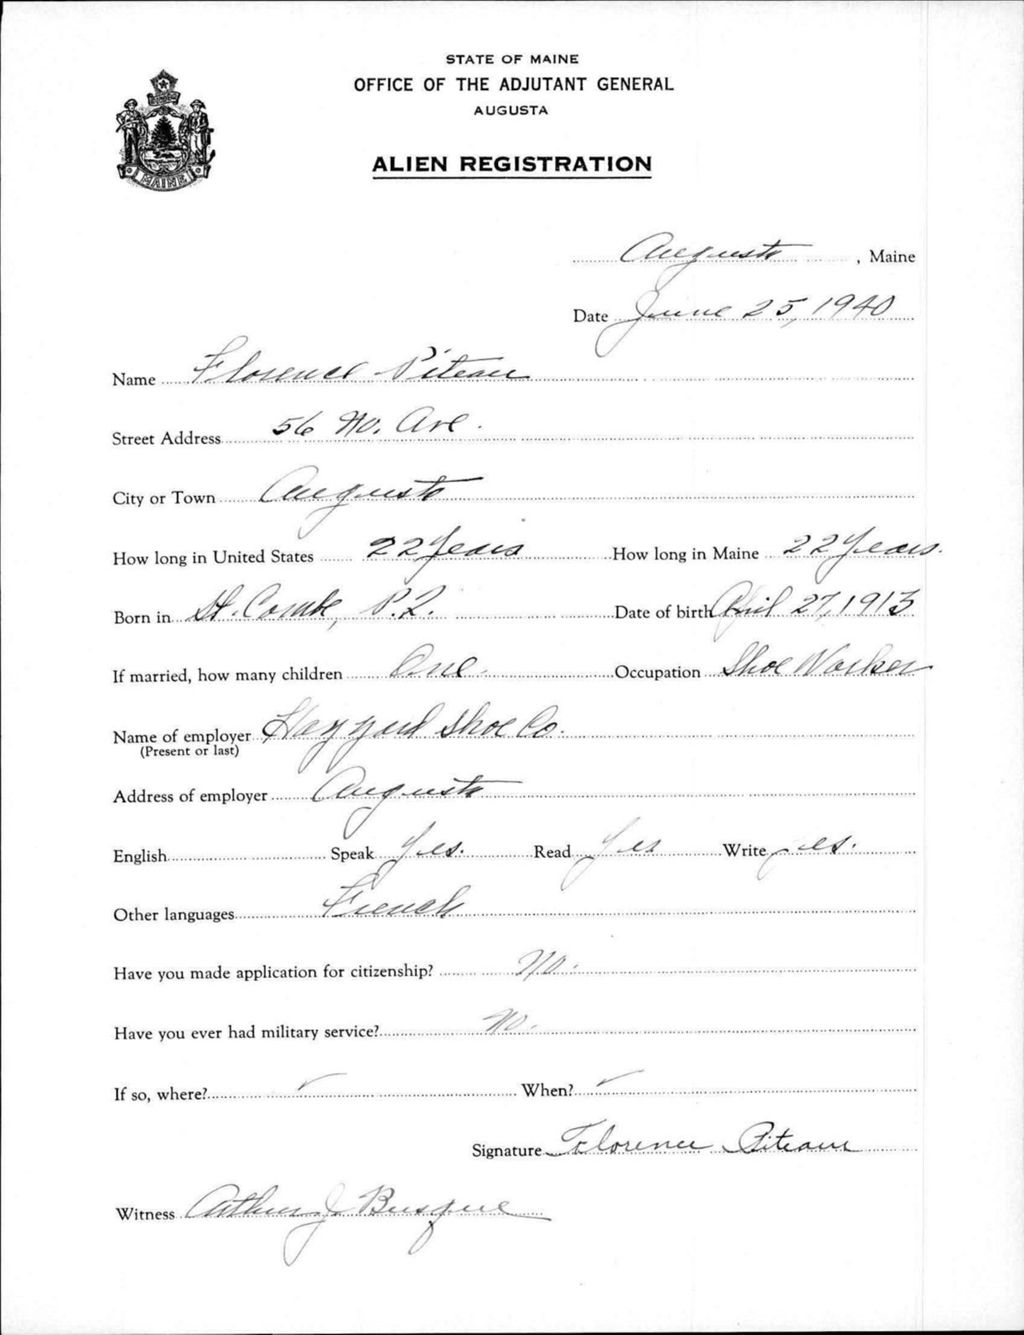 STATE OF MAINE
OFFICE OF THE ADJUTANT GENERAL
AUGUSTA
ALIEN REGISTRATION
MAINE
Augusta, Maine
Date June 25, 1940
Name Florence Piteau
Street Address 56 No. Ave.
City or Town Augusta
How long in United States 22 Years How long in Maine 22 Years.
Born in St. Combe, P.Q. Date of birth April 27, 1913
If married, how many children One. Occupation Shoe Worker
Name of employer Hazzard Shoe Co.
(Present or last)
Address of employer Augusta
English Speak Yes. Read Yes Write Yes.
Other languages French
Have you made application for citizenship? No.
Have you ever had military service? No.
If so, where? ✓ When? ✓
Signature Florence Piteau
Witness Arthur J Busque